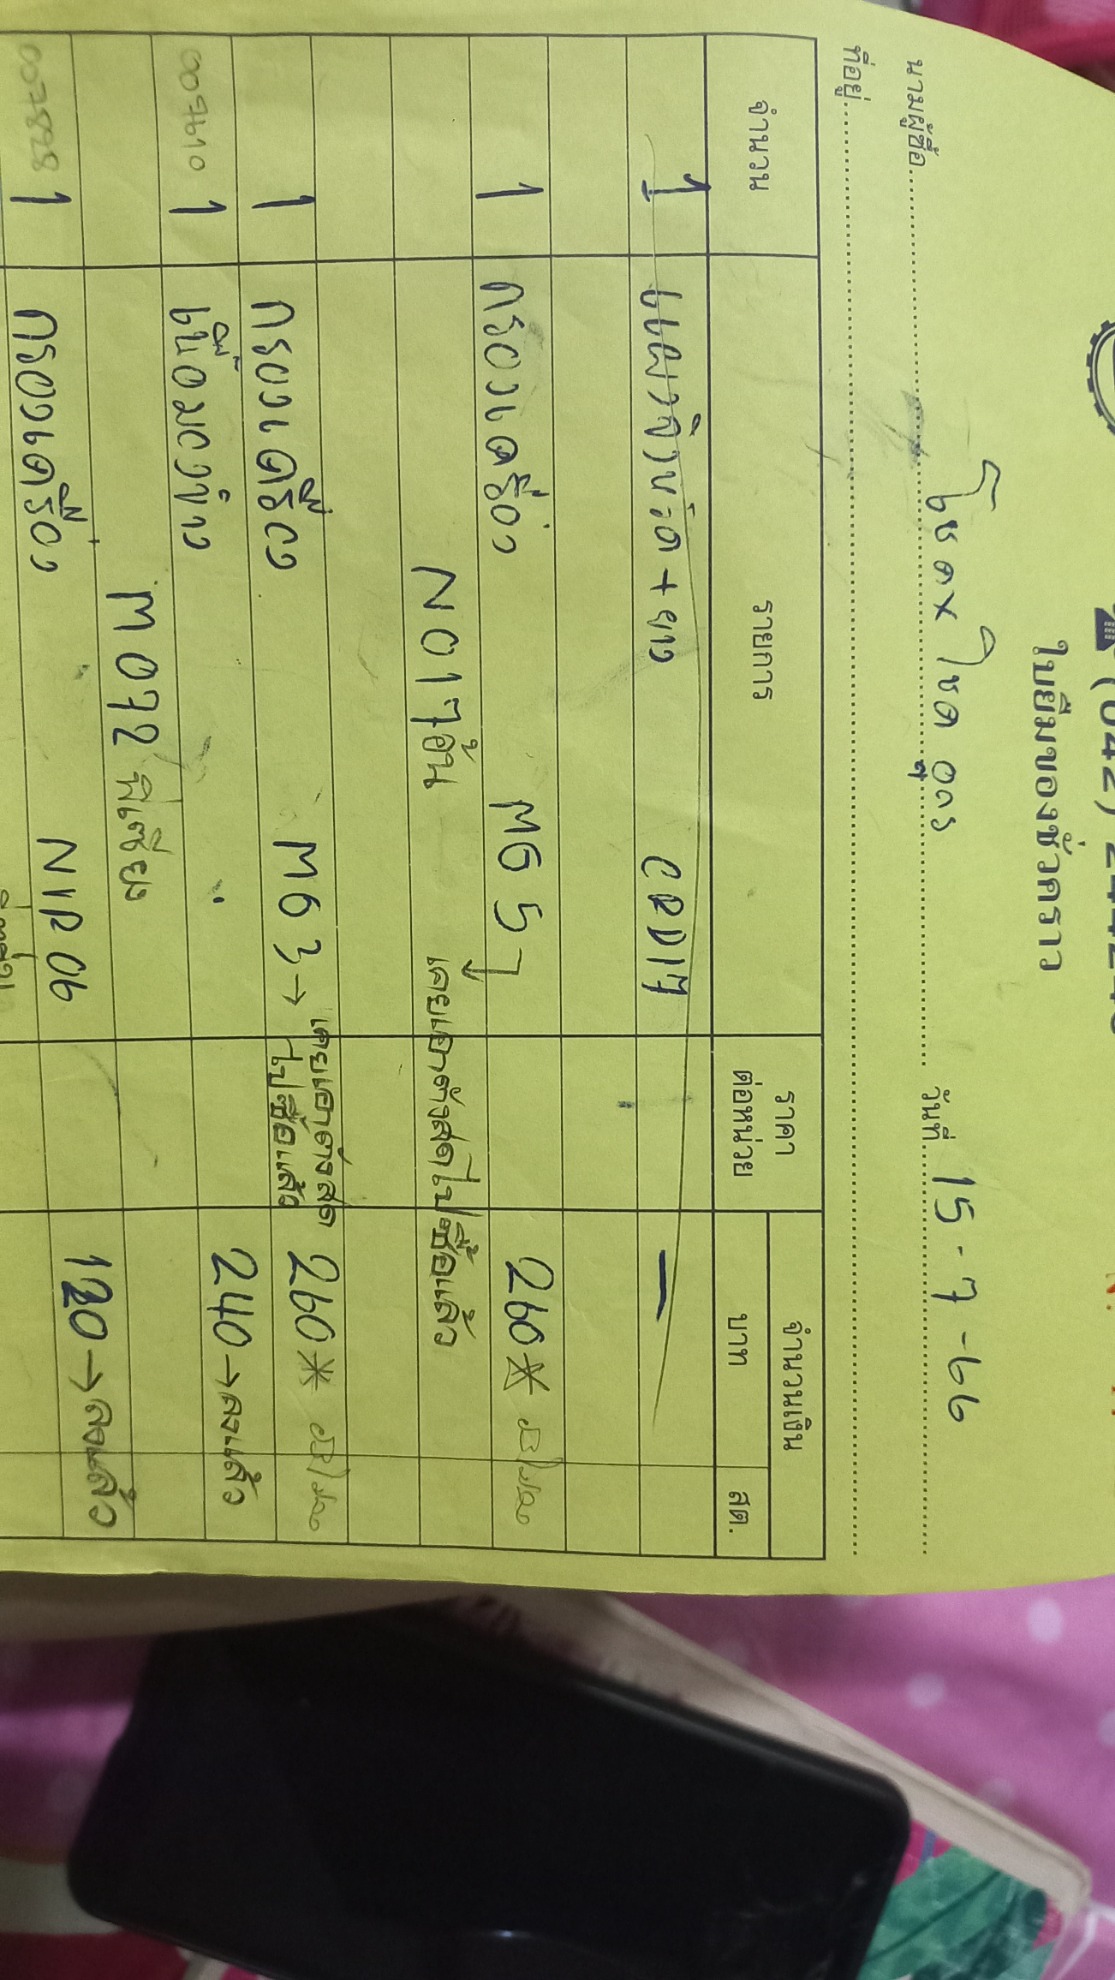 ใบยืมของชั่วคราว
นามผู้ซื้อ โชคx ใชค อุดร วันที่ 15-7-66
ที่อยู่
จำนวน รายการ ราคาต่อหน่วย จำนวนเงิน บาท สต.
1 + ยาว CRD17 —
1 กรองเครื่อง MG 5 260 *
N017 อ้น เคยเอาตังสดไปซื้อแล้ว
1 กรองเครื่อง MG 3 → เคยเอาตังสดไปซื้อแล้ว 260 *
0097610 1 240 → ลงแล้ว
M072 พี่เซียง
0078728 1 กรองเครื่อง NIR06 120 → ลงแล้ว